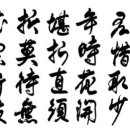 君惜取少
年時花開
堪折直須
折莫待無